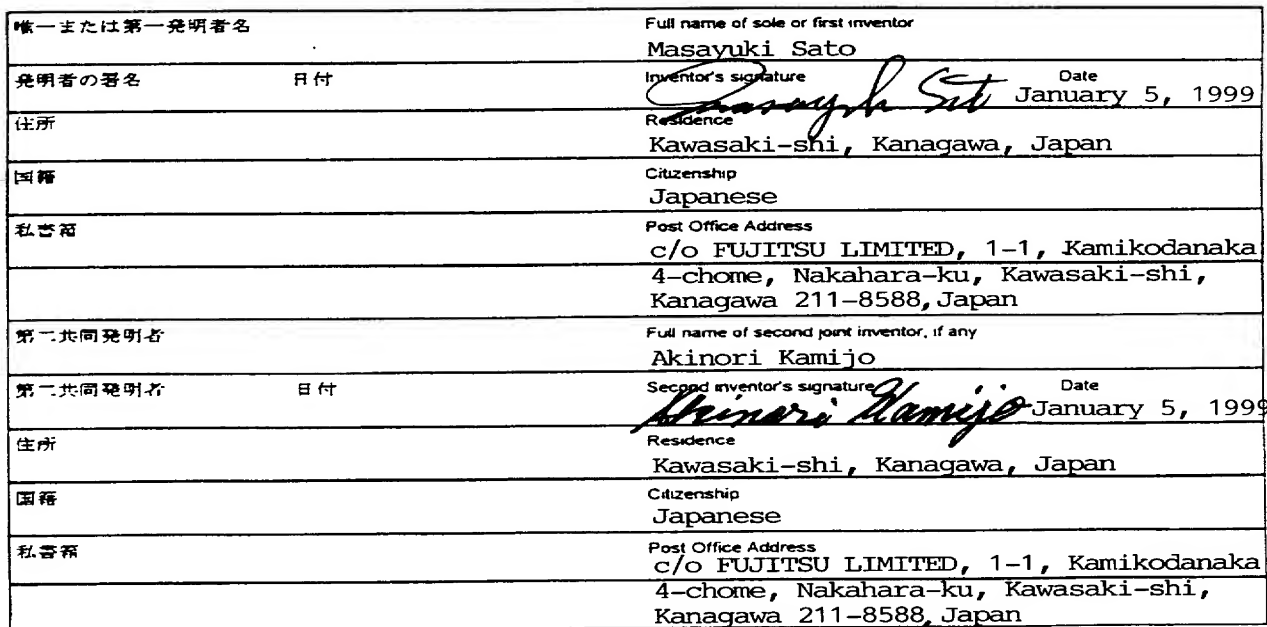 唯一または第一発明者名 Full name of sole or first inventor
Masayuki Sato
発明者の署名 日付 Inventor's signature Date
Masayuki Sato January 5, 1999
住所 Residence
Kawasaki-shi, Kanagawa, Japan
国籍 Citizenship
Japanese
私書箱 Post Office Address
c/o FUJITSU LIMITED, 1-1, Kamikodanaka
4-chome, Nakahara-ku, Kawasaki-shi,
Kanagawa 211-8588, Japan
第二共同発明者 Full name of second joint inventor, if any
Akinori Kamijo
第二共同発明者 日付 Second inventor's signature Date
Akinori Kamijo January 5, 1999
住所 Residence
Kawasaki-shi, Kanagawa, Japan
国籍 Citizenship
Japanese
私書箱 Post Office Address
c/o FUJITSU LIMITED, 1-1, Kamikodanaka
4-chome, Nakahara-ku, Kawasaki-shi,
Kanagawa 211-8588, Japan